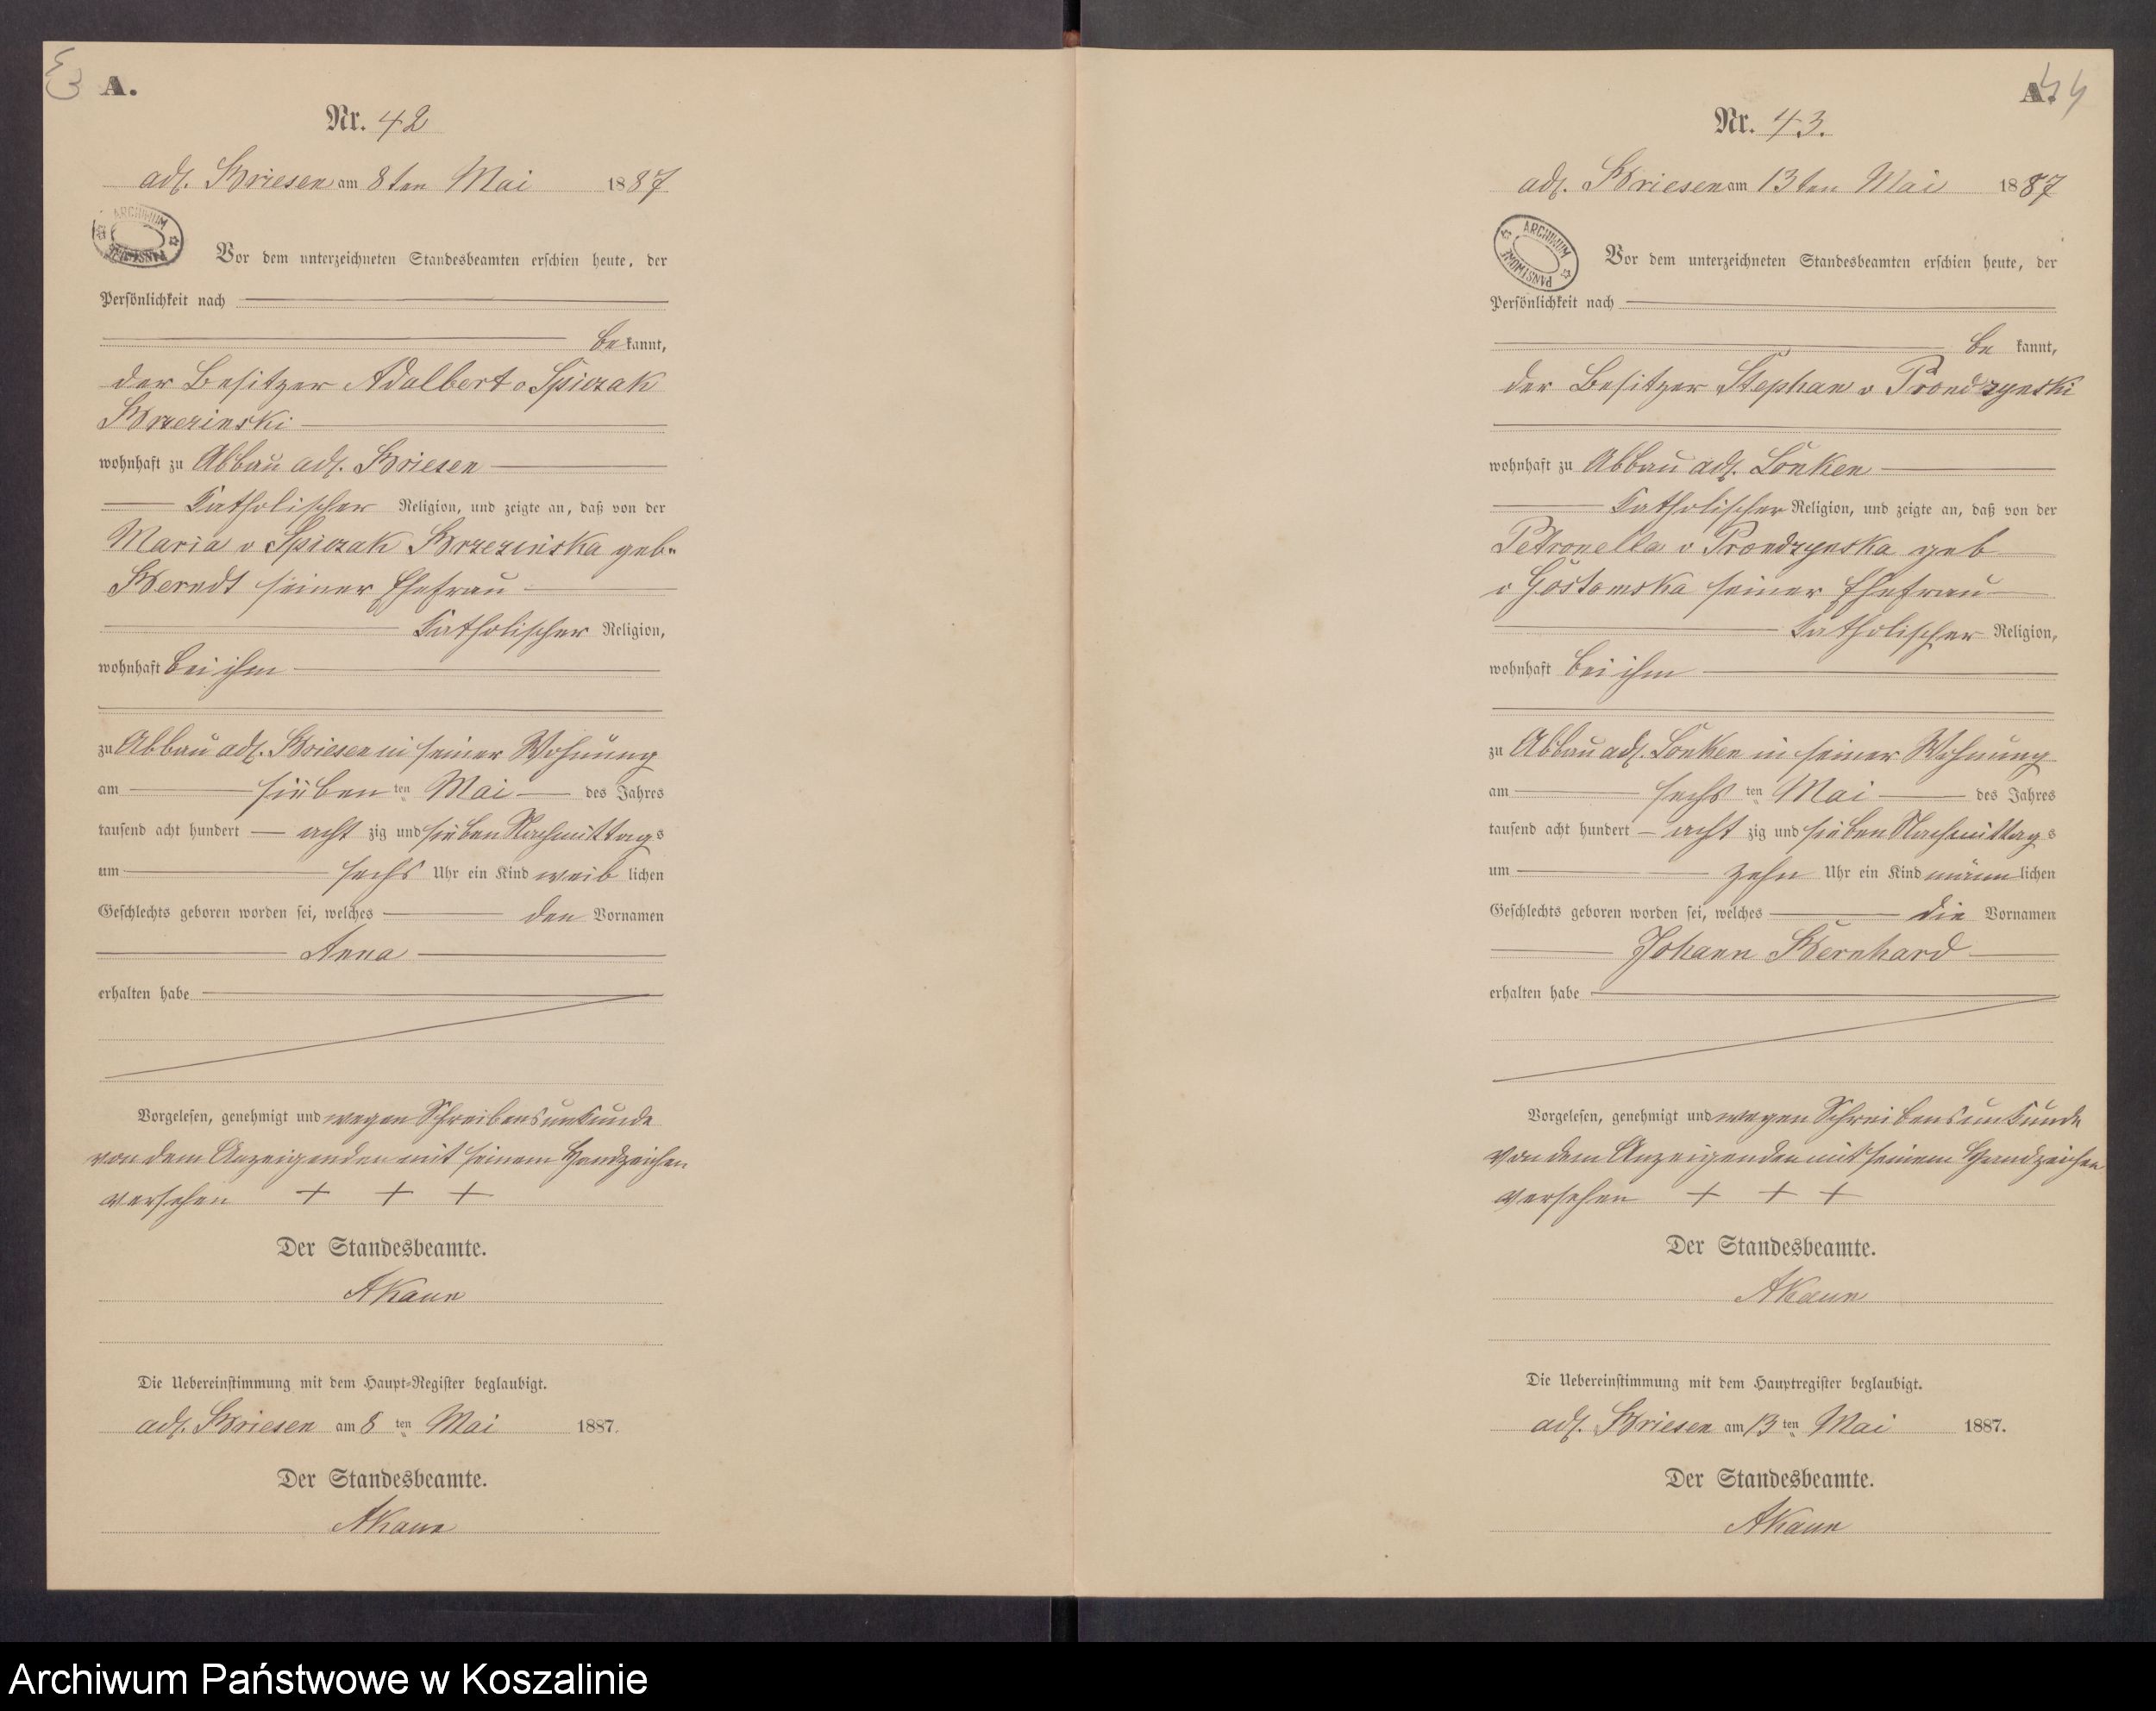 A.
Nr. 42
adl. Briesen am 8ten Mai 1887
ARCHIWUM
PAŃSTWOWE
Vor dem unterzeichneten Standesbeamten erschien heute, der
Persönlichkeit nach
bekannt,
der Besitzer Adalbert v Spiczak
Brzezinski
wohnhaft zu Abbau adl. Briesen
Katholischer Religion, und zeigte an, daß von der
Maria v Spiczak Brzezińska geb.
Berndt seiner Ehefrau
Katholischer Religion,
wohnhaft bei ihm
zu Abbau adl. Briesen in seiner Wohnung
am sieben ten Mai des Jahres
tausend acht hundert acht zig und sieben Nachmittags
um sechs Uhr ein Kind weiblichen
Geschlechts geboren worden sei, welches den Vornamen
Anna
erhalten habe
Vorgelesen, genehmigt und wegen Schreibensunkunde
von dem Anzeigenden mit seinem Handzeichen
versehen + + +
Der Standesbeamte.
AKaun
Die Uebereinstimmung mit dem Haupt-Register beglaubigt.
adl. Briesen am 8 ten Mai 1887.
Der Standesbeamte.
AKaun
A.
44
Nr. 43.
adl. Briesen am 13ten Mai 1887
ARCHIWUM
PAŃSTWOWE
Vor dem unterzeichneten Standesbeamten erschien heute, der
Persönlichkeit nach
be kannt,
der Besitzer Stephan v Prondzynski
wohnhaft zu Abbau adl. Lonken
Katholischer Religion, und zeigte an, daß von der
Petronella v Prondzynska geb
v Gostomska seiner Ehefrau
Katholischer Religion,
wohnhaft bei ihm
zu Abbau adl. Lonken in seiner Wohnung
am sechs ten Mai des Jahres
tausend acht hundert acht zig und sieben Nachmittags
um zehn Uhr ein Kind männlichen
Geschlechts geboren worden sei, welches die Vornamen
Johann Bernhard
erhalten habe
Vorgelesen, genehmigt und wegen Schreibensunkunde
von dem Anzeigenden mit seinem Handzeichen
versehen + + +
Der Standesbeamte.
AKaun
Die Uebereinstimmung mit dem Hauptregister beglaubigt.
adl. Briesen am 13 ten Mai 1887.
Der Standesbeamte.
AKaun
Archiwum Państwowe w Koszalinie